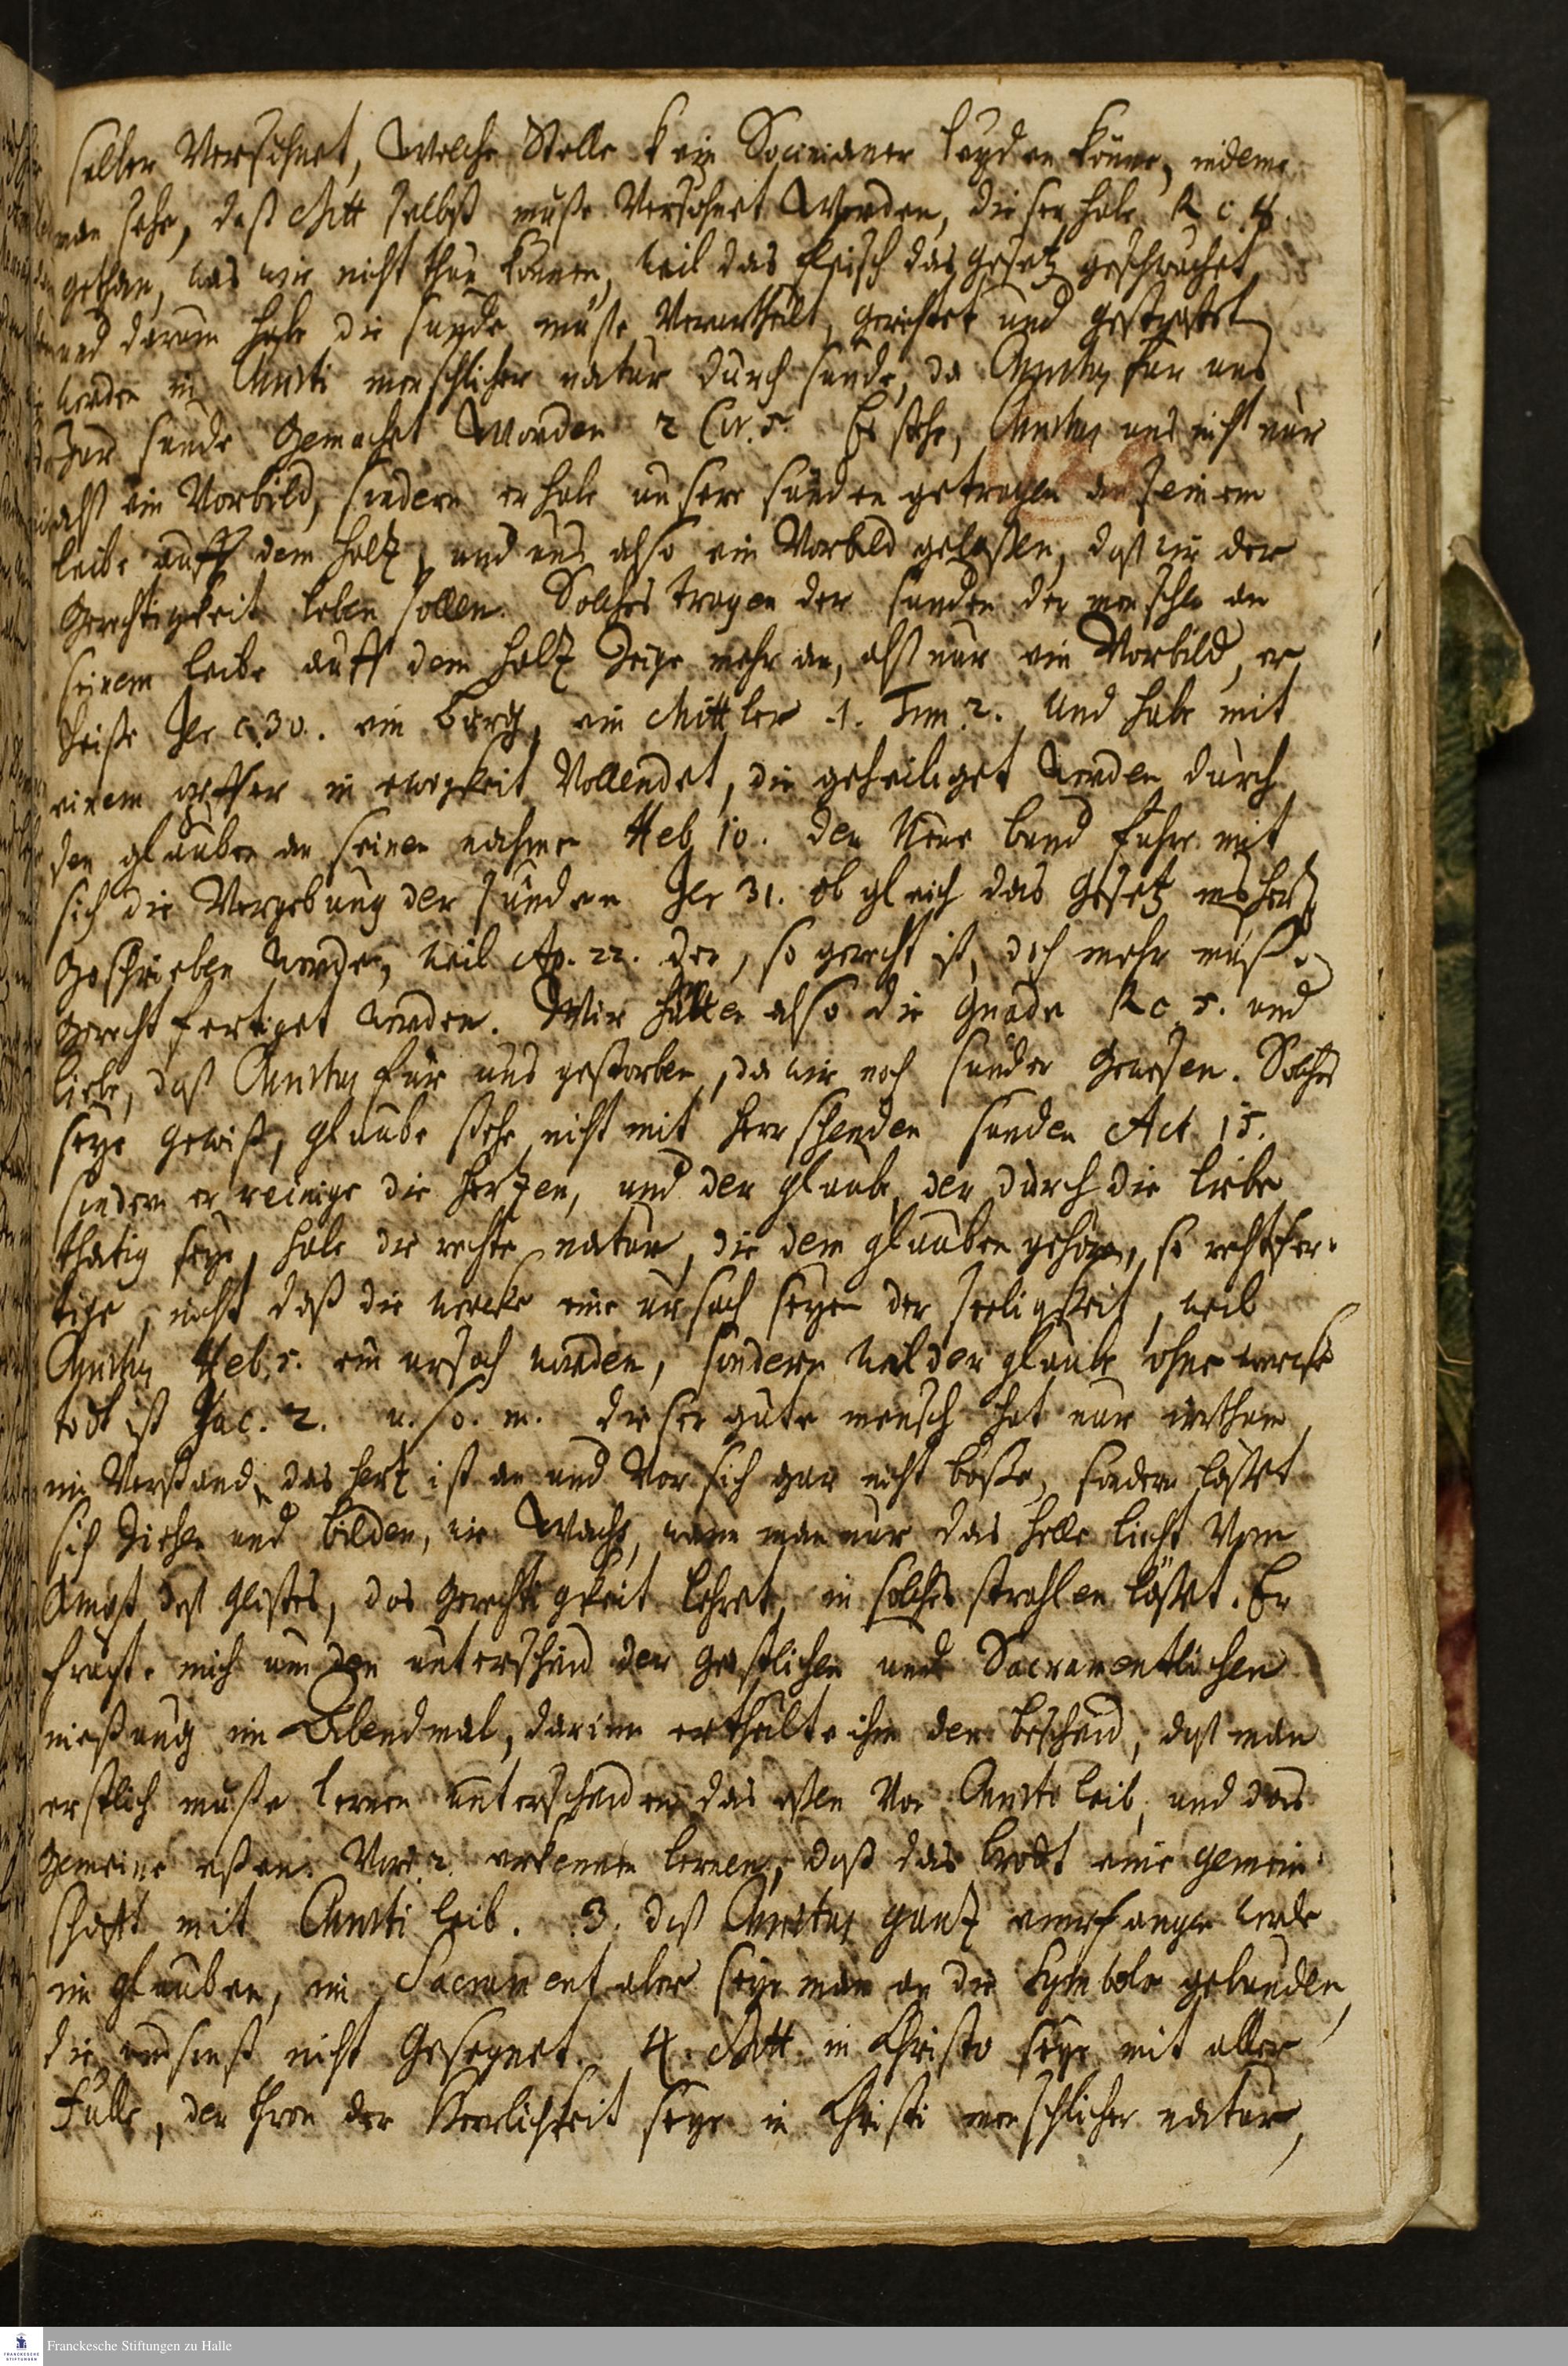 selber Versohnet, Welche Stelle kein Socinianer leyden könne, indeme
man sehe, daß Gott selbst muße Versohnet Werden, dieser habe Ro 8.
gethan, was wir nicht thun können, weil das fleisch das gesetz geschwächet,
und darum habe die sunde müße Verurtheilt, gerichtet und gestrafet
werden in Christi menschlicher natur durch sunde, da Christus für uns
Zur sunde Gemachet Worden 2 Cor. 5. Er sehe, Christus uns nicht nur
alß ein Vorbild, sondern er habe unsere sünden getragen an seinem
leibe auff dem holtz, und uns also ein Vorbild gelaßen, daß wir der
Gerechtigkeit leben sollen. Solches tragen der sunden der menschen an
seinem leibe auff dem holtz Zeige mehr an, alß nur ein Vorbild, er
heiße Jer c. 30. ein burg, ein Mittler 1. Tim 2. und habe mit
einem opffer in ewigkeit Vollendet, die geheiliget werden durch
den glauben an seinen nahmen Heb 10. der Neue bund fuhre mit
sich die Vergebung der sünden Jer 31. ob gleich das Gesetz ins hertz
Geschrieben werde, weil Ap. 22. der, so gerecht ist, doch mehr müße
Gerechtfertiget werden. Wir hätten also die Gnade Ro 5. und
liebe, daß Christus für uns gestorben, da wir noch sunder Gewesen. Solches
seye gewiß, glaube stehe nicht mit herrschenden sunden Act 15.
sondern er reinige die hertzen, und der glaube, der durch die liebe
thatig seye, habe die rechte natur, die dem glauben gehöre, so rechtfer-
tige, nicht daß die wercke eine ursach seyen der seeligkeit, weil
Christus Heb. 5. ein ursach worden, sondern weil der glaube ohne wercke
todt ist Jac. 2. u. so. m. dieser gute mensch hat nur irrthum
im Verstand, das hertz ist an und Vor sich gar nicht böße, sondern läßet
sich Ziehen und bilden, wie Wachs, wann man nur das helle licht Vom
Ampt deß Geistes, das Gerechtigkeit lehret, in solches strahlen läßet. Er
fragte mich um den unterscheid der geistlichen und Sacramentlichen
nießung im Abendmal, darinn ertheilte ihm den bescheid, daß man
erstlich muße lernen unterscheiden das eßen Von Christi leib, und das
Gemeine eßen. Vors 2. erkennen lernen, daß das brodt eine gemein-
schafft mit Christi leib. 3. daß Christus gantz empfangen werde
im glauben, im Sacrament aber seye man an die Symbola gebunden,
die und sonst nicht Gesegnet. 4. Gott in Christo seye mit aller
Fulle, der thron der Herrlichkeit seye in Christi menschlicher natur,
Franckesche Stiftungen zu Halle